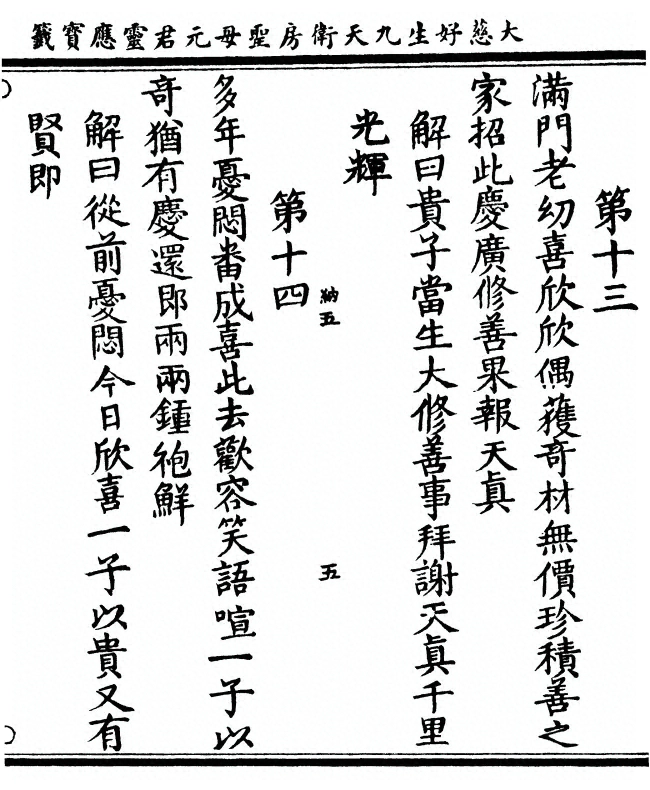 大慈好生九天衛房聖母元君靈應寶籤
第十三
滿門老幼喜欣欣偶獲奇材無價珍積善之
家招此慶廣修善果報天眞
解曰貴子當生大修善事拜謝天眞千里
光輝
納五
五
第十四
多年憂悶畨成喜此去歡容笑語喧一子以
奇猶有慶還郎兩兩鍾袍鮮
解曰從前憂悶今日欣喜一子以貴又有
賢郎